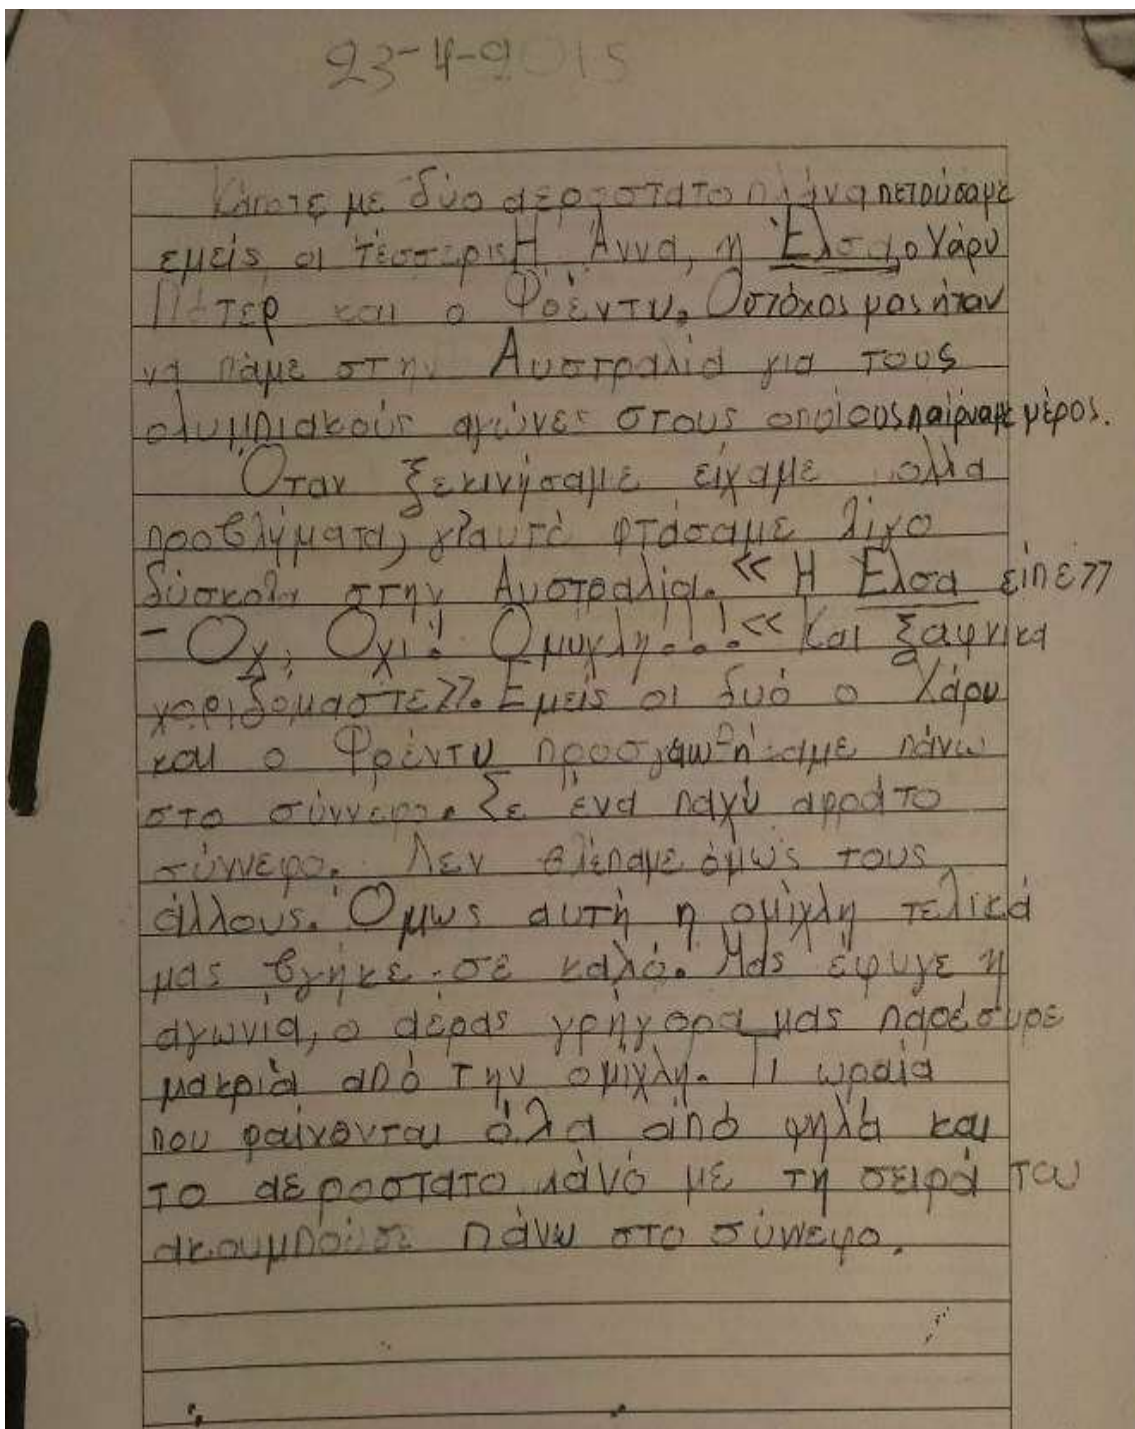 23-4-2015
Κάποτε με δύο αεροστατο πλάνα πετούσαμε
εμείς οι τέσσερις Η Άννα, η Έλσα, ο Χάρυ
Πότερ και ο Φρέντυ. Ο στόχος μας ήταν
να πάμε στην Αυστραλία για τους
ολυμπιακούς αγώνες στους οποίους παίρναμε μέρος.
Όταν ξεκινήσαμε είχαμε πολλά
προβλήματα, γι'αυτό φτάσαμε λίγο
δύσκολα στην Αυστραλία. << Η Έλσα είπε>>
- Όχι, Όχι! Ομίχλη!..!<< Και ξαφνικα
χωριζόμαστε>>. Εμείς οι δυό ο Χάρυ
και ο Φρέντυ πάνω
στο σύννεφο. Σε ένα παχύ αφράτο
σύννεφο. Δεν βλέπαμε όμως τους
άλλους. Όμως αυτή η ομίχλη τελικά
μας βγήκε σε καλό. Μας έφυγε η
αγωνία, ο αέρας γρήγορα μας παρέσυρε
μακριά από την ομίχλη. Τι ωραία
που φαίνονται όλα από ψηλά και
το αεροστατο πλάνο με τη σειρά του
ακουμπούσε πάνω στο σύννεφο.